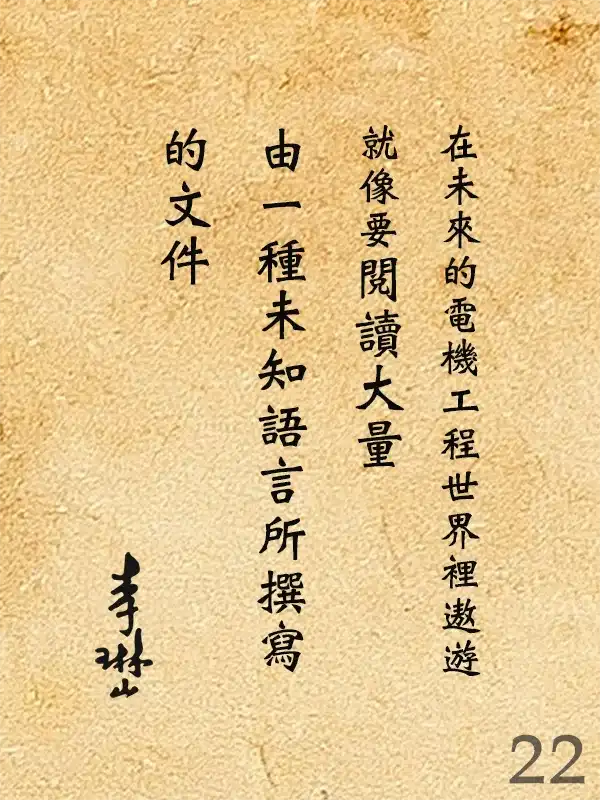 在未來的電機工程世界裡遨遊
就像要閱讀大量
由一種未知語言所撰寫
的文件
李琳山
22